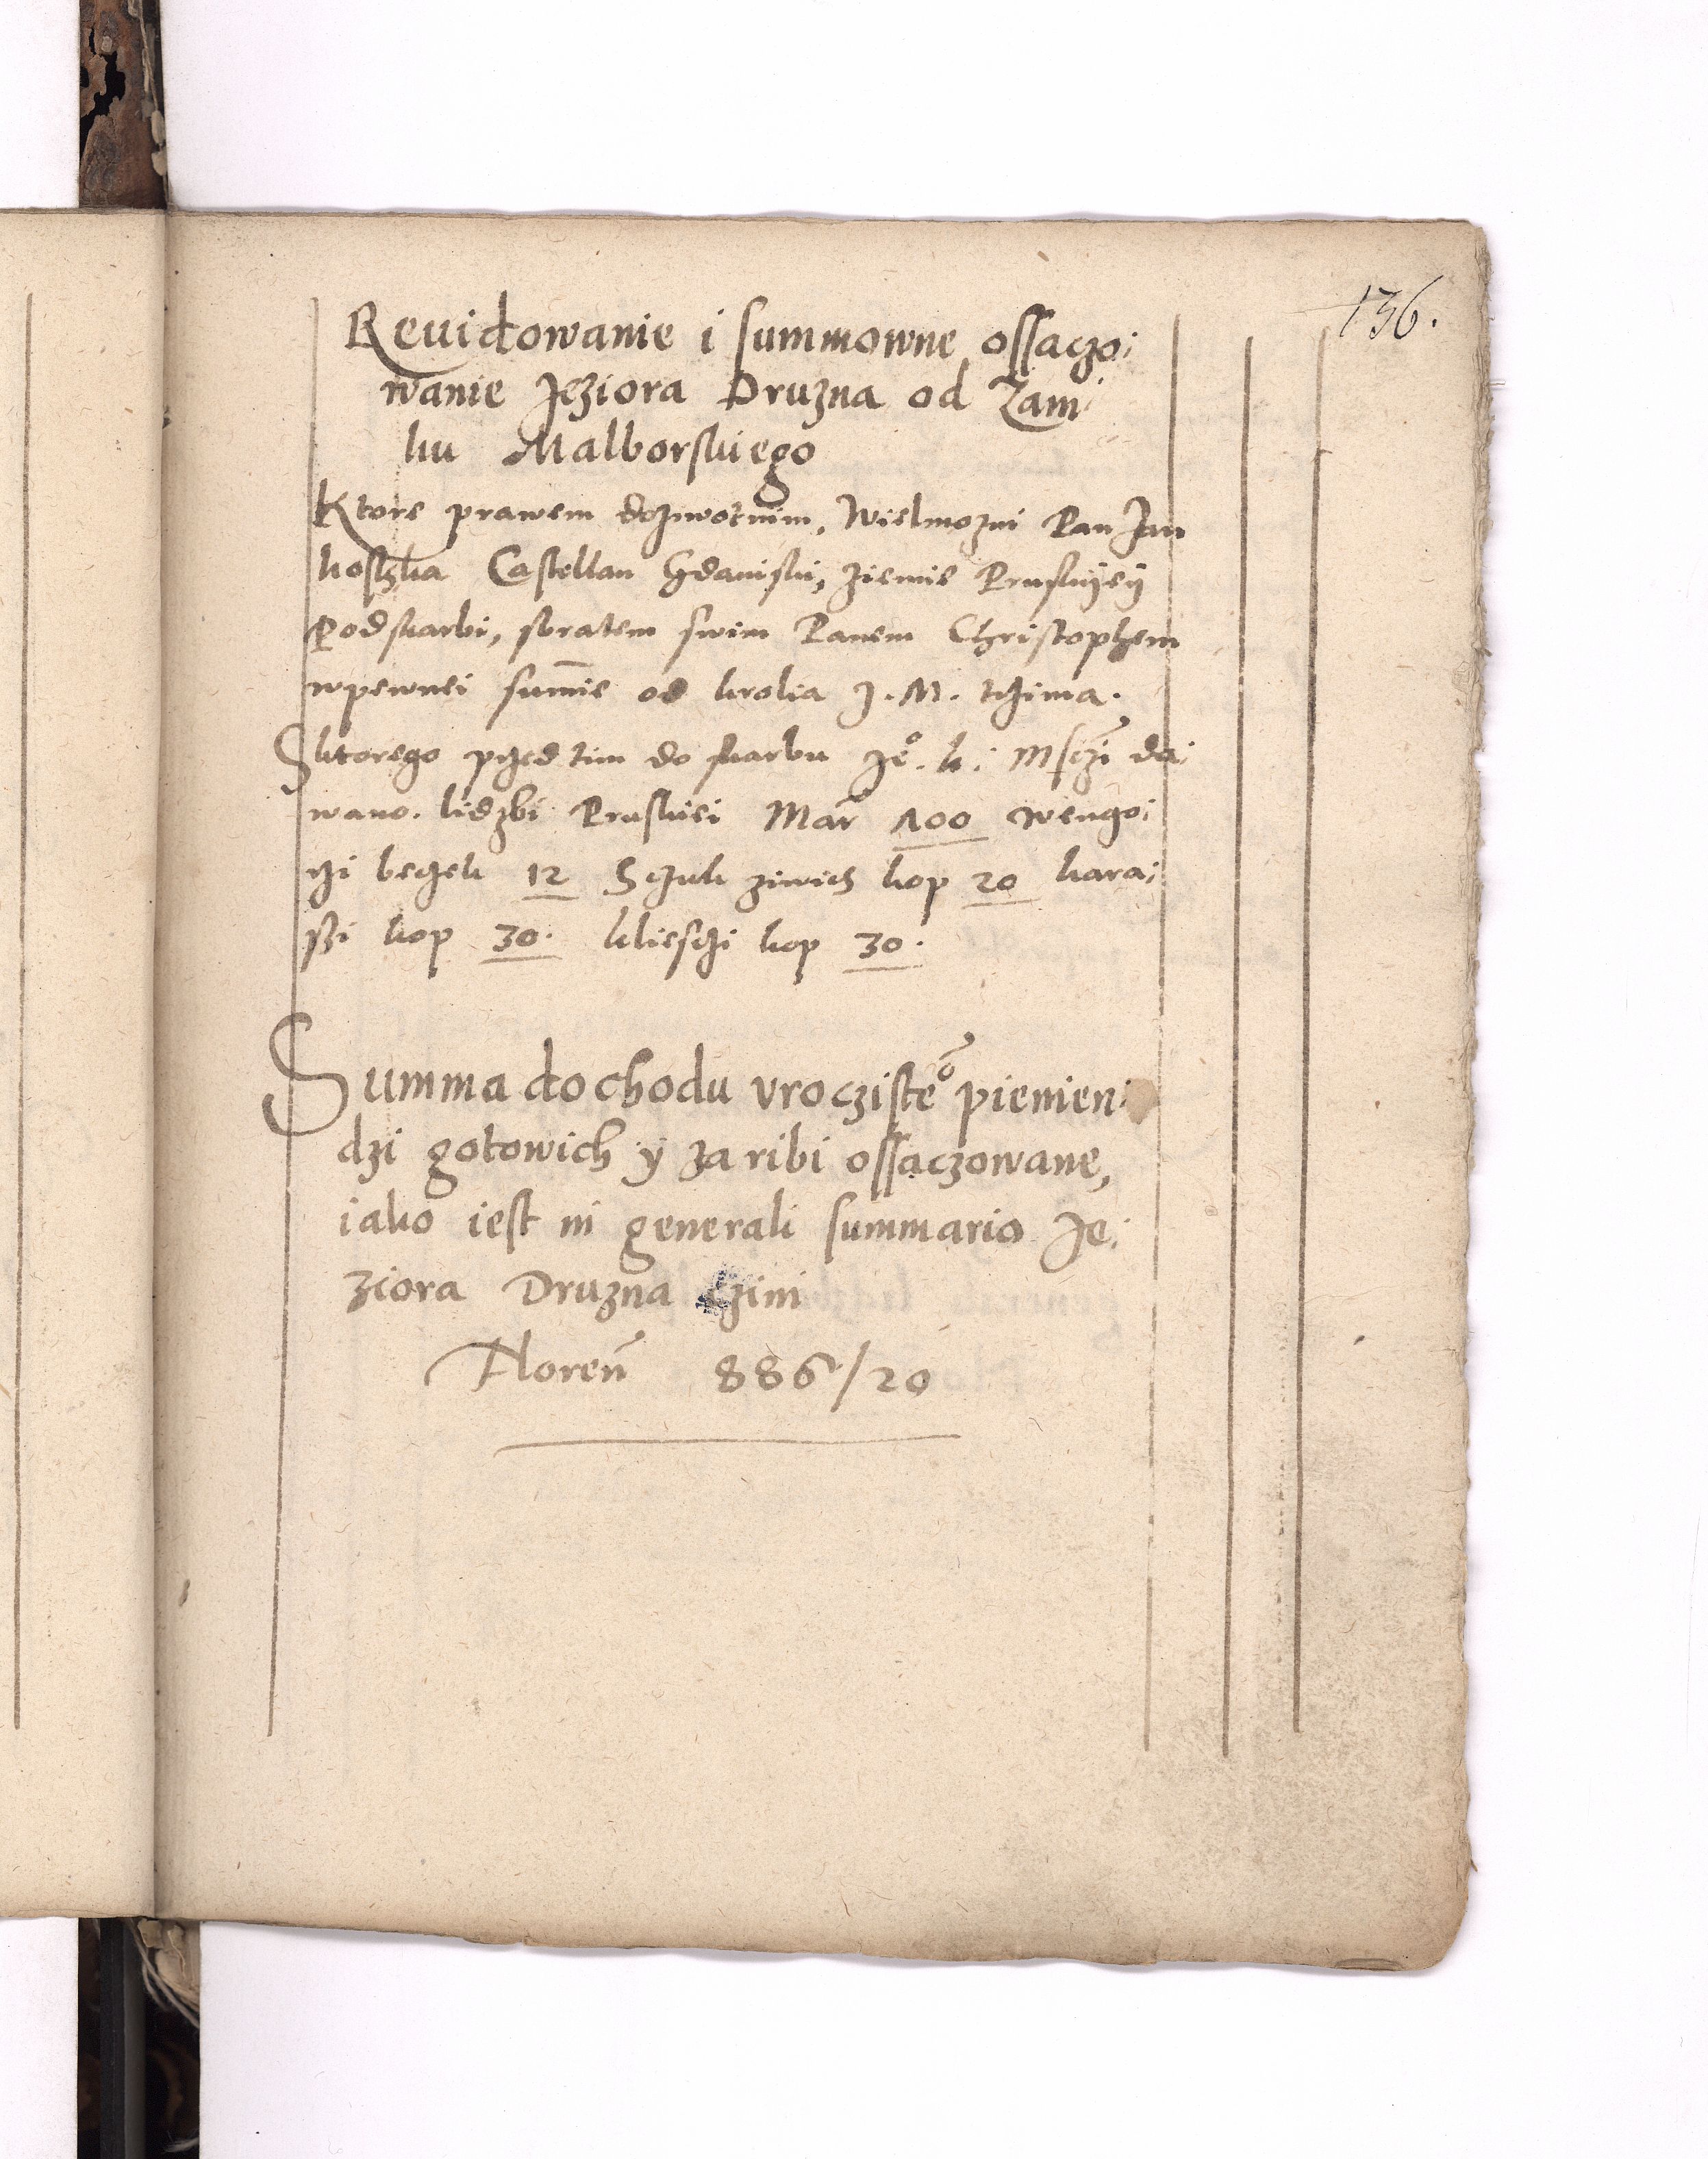 136.
Reuidowanie i summowne ossaczo:
wanie Jeziora Druzna od Zam:
ku Malborskiego
Ktore prawem dozywotnim, Wielmozni Pan Jan
kostka Castellan Gdaniski, ziemie Pruskiyey
Podskarbi, sbratem swim Panem Christophem
wpewnei summie od krolia J. M. trzima.
Sktorego przed tim do skarbu Je°. k: Msczi da:
wano. lidzbi Pruskiei Mar 100 wengo:
rzi beczek 12 Sczuk ziwich kop 20 kara:
szi kop 30. klieszi kop 30.
Summa dochodu vrocziste° pienien:
dzi gotowich y za ribi ossaczowane,
iako iest in generali summario Je:
ziora Druzna czini
Floren 886/20